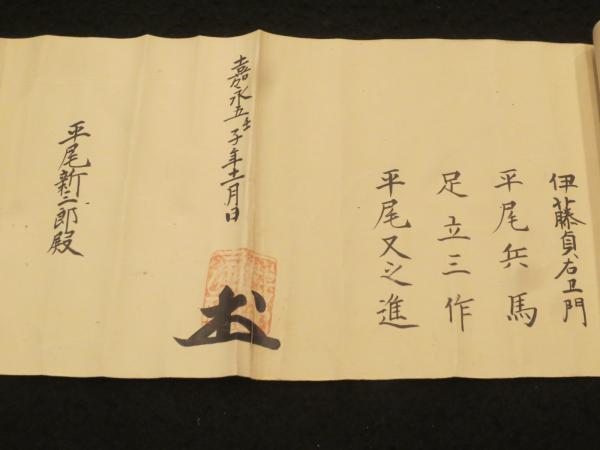 伊藤貞右卫門
平尾兵馬
足立三作
平尾又之進
嘉永五壬子年十一月日
平尾新二郎殿